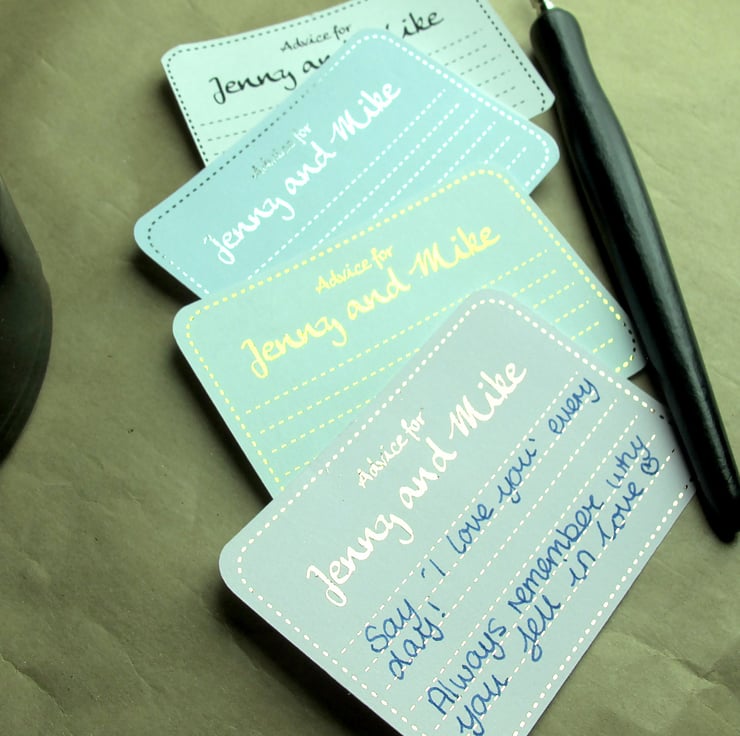 Advice for
Jenny an Mike
Advice for
Jenny and Mike
Advice for
Jenny and Mike
Advice for
Jenny and Mike
Say 'I love you' every
day!
Always remember why
you fell in love